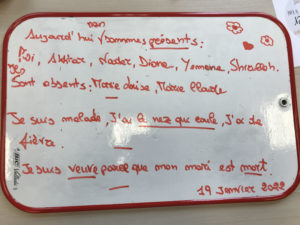 non
Aujourd'hui sommes présents:
Akhtar, Nader, Diane, Yemane, Shrabah.
Sont absents: Marie Louise, Marie Claude
Je suis malade, j'ai le nez qui coule, j'ai de
fièvre.
Je suis veuve parce que mon mari est mort.
19 Janvier 2022